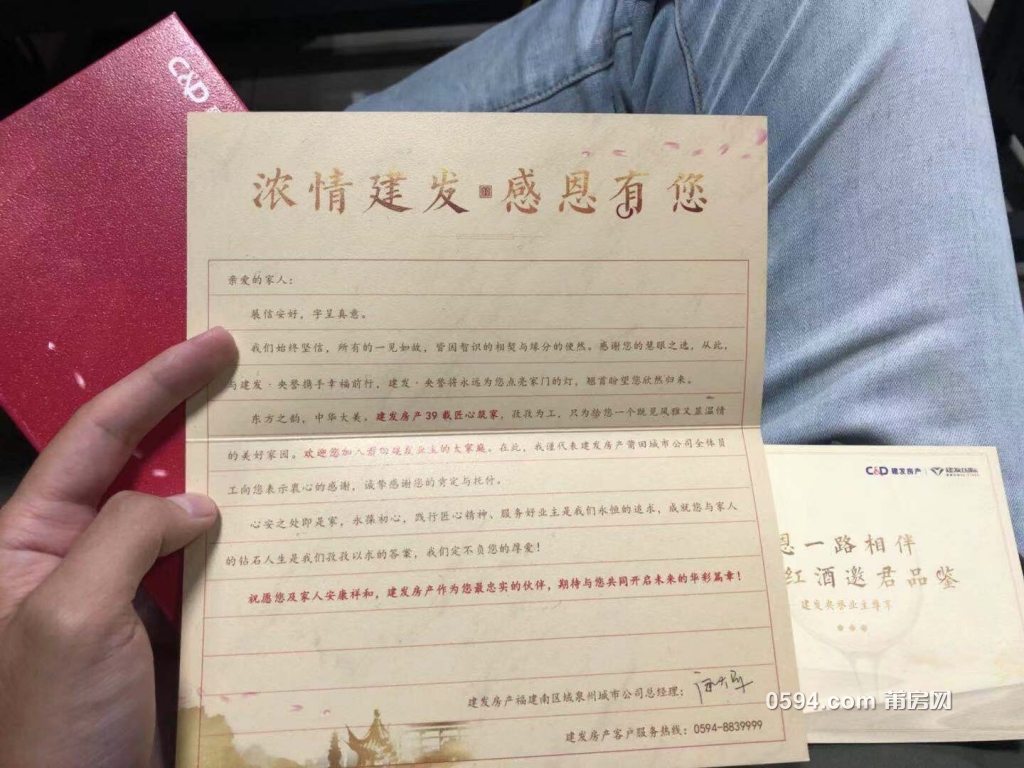 C&D
浓情建发 感恩有您
亲爱的家人：
展信安好，字呈真意。
我们始终坚信，所有的一见如故，皆因智识的相契与缘分的使然。感谢您的慧眼之选，从此，
与建发·央誉携手幸福前行，建发·央誉将永远为您点亮家门的灯，翘首盼望您欣然归来。
东方之韵，中华大美。建发房产39载匠心筑家，孜孜为工，只为给您一个既见风雅又显温情
的美好家园。欢迎您加入莆田建发业主的大家庭。在此，我谨代表建发房产莆田城市公司全体员
工向您表示衷心的感谢，诚挚感谢您的肯定与托付。
心安之处即是家，永葆初心，践行匠心精神、服务好业主是我们永恒的追求，成就您与家人
的钻石人生是我们孜孜以求的答案，我们定不负您的厚爱！
祝愿您及家人安康祥和，建发房产作为您最忠实的伙伴，期待与您共同开启未来的华彩篇章！
建发房产福建南区域泉州城市公司总经理：
建发房产客户服务热线：0594-8839999
C&D 建发房产
恩一路相伴
红酒邀君品鉴
建发央誉业主尊享
0594.com 莆房网